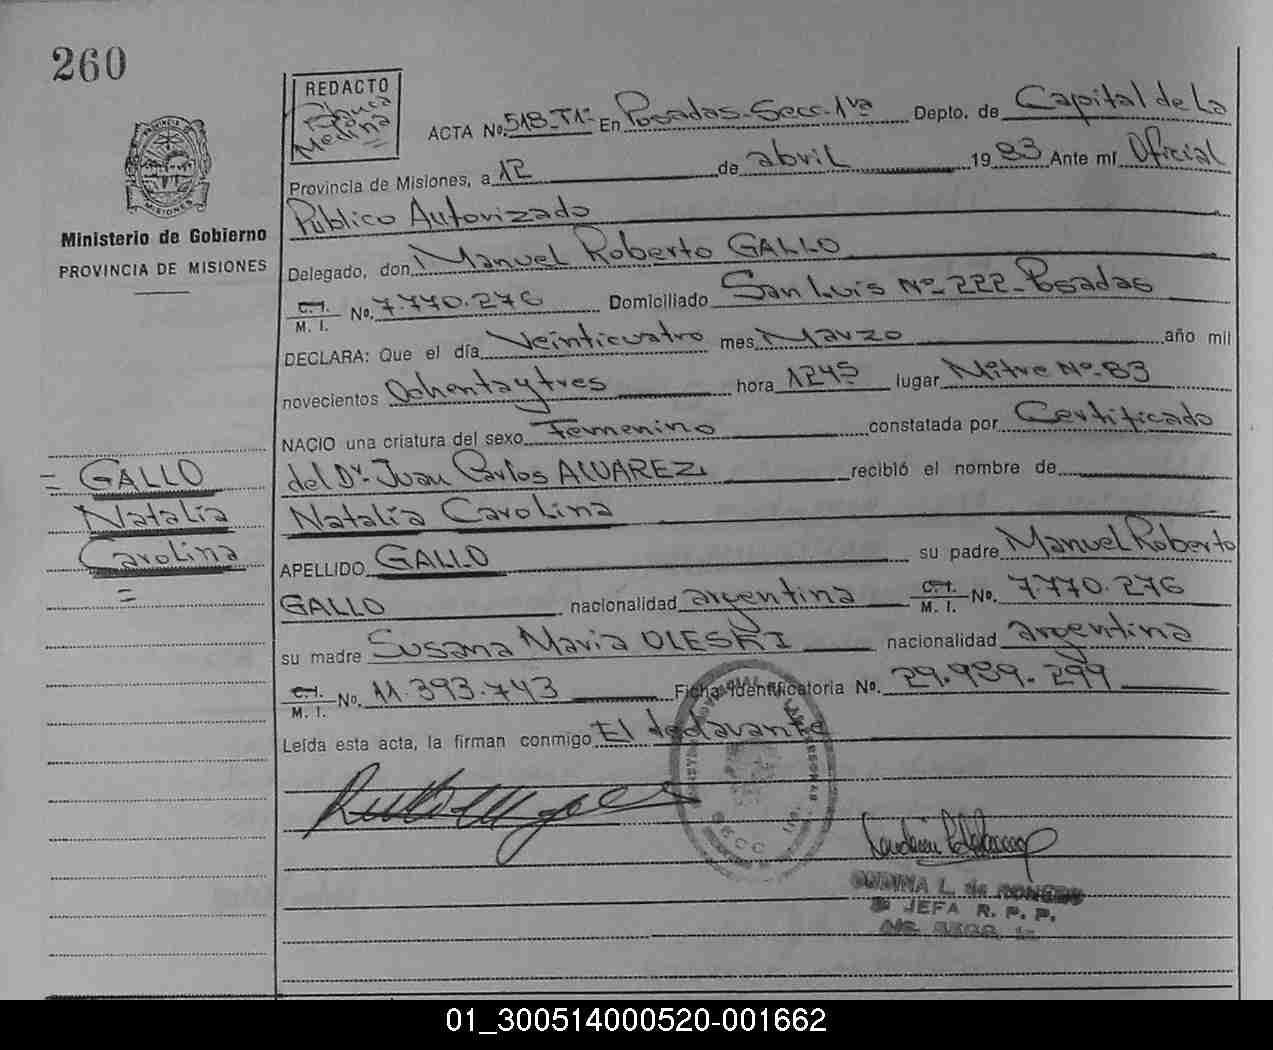 260
REDACTO
Blanca
Medina
PROVINCIA DE
MISIONES
Ministerio de Gobierno
PROVINCIA DE MISIONES
ACTA No. 518-T1º- En Posadas-Secc-1ra Depto. de Capital de La
Provincia de Misiones, a 12 de abril 1983 Ante mí Oficial
Público Autorizado
Delegado, don Manuel Roberto GALLO
C.I. M. I. No. 7.770.276 Domiciliado San Luis Nº-222-Posadas
DECLARA: Que el día Veinticuatro mes Marzo año mil
novecientos Ochentaytres hora 1245 lugar Mitre Nº-83
NACIO una criatura del sexo Femenino constatada por Certificado
del Dr. Juan Carlos ALVAREZ. recibió el nombre de
Natalia Carolina
APELLIDO GALLO su padre Manuel Roberto
GALLO nacionalidad argentina C.I. M. I. No. 7.770.276
su madre Susana Maria OLESKI nacionalidad argentina
C.I. M. I. No. 11.393.743 Ficha Identificatoria No. 29.989.299
Leída esta acta, la firman conmigo El declarante
= GALLO
Natalia
Carolina
=
L. de
JEFA R. P. P.
01_300514000520-001662